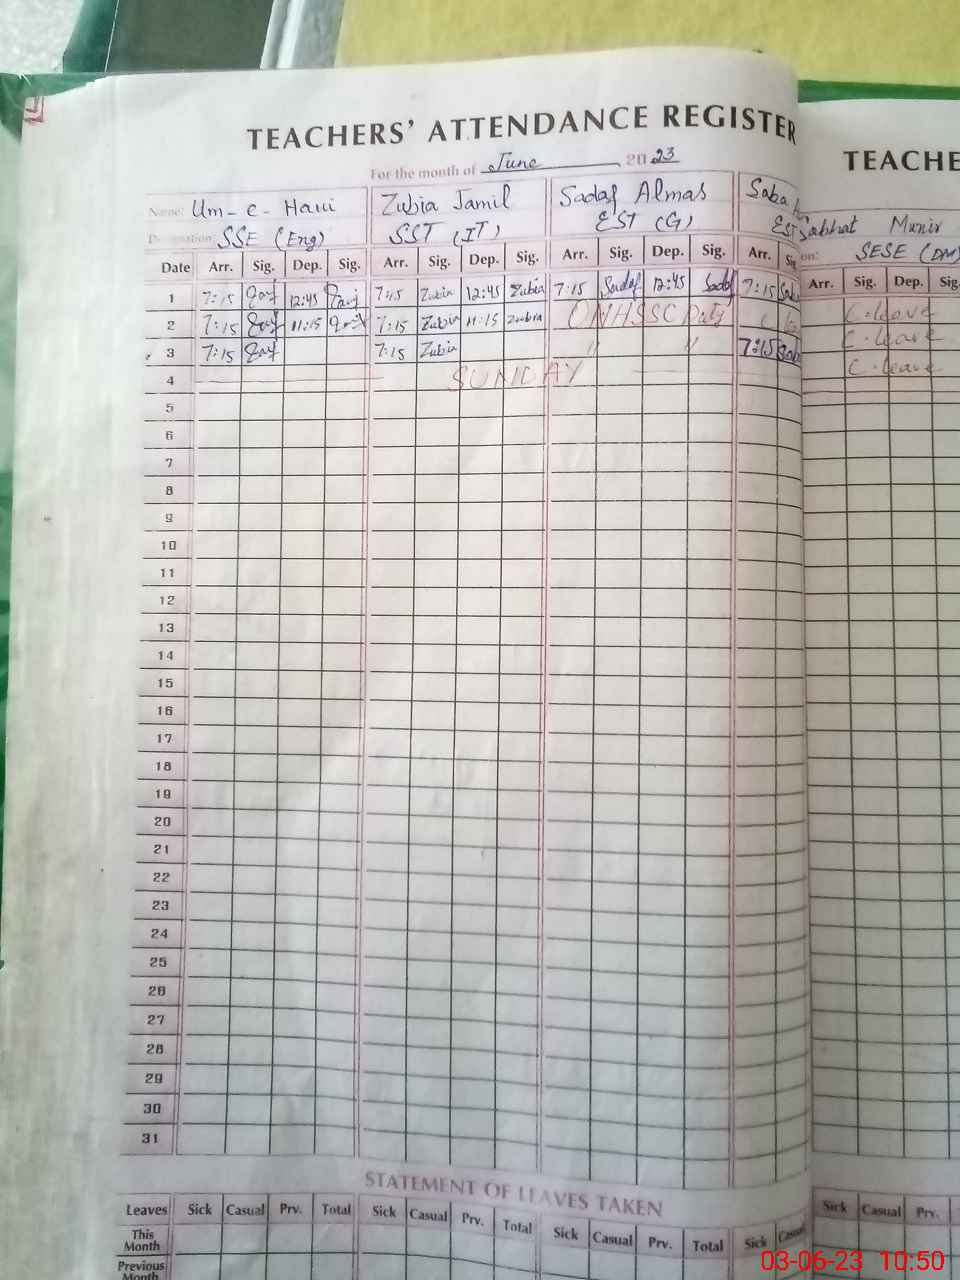 TEACHERS' ATTENDANCE REGISTER
For the month of June 2023
Name: Um-e-Hani Zubia Jamil Sadaf Almas Saba
Designation: SSE (Eng) SST (IT) EST (G) EST
Date Arr. Sig. Dep. Sig. Arr. Sig. Dep. Sig. Arr. Sig. Dep. Sig. Arr. Sig
1 7:15 12:45 7:15 Zubia 12:45 Zubia 7:15 Sadaf 12:45 Sadaf 7:15 Saba
2 7:15 11:15 7:15 Zubia 11:15 Zubia ON HSSC Duty
3 7:15 7:15 Zubia " " 7:15 Saba
4 SUNDAY
5
6
7
8
9
10
11
12
13
14
15
16
17
18
19
20
21
22
23
24
25
26
27
28
29
30
31
STATEMENT OF LEAVES TAKEN
Leaves Sick Casual Prv. Total Sick Casual Prv. Total Sick Casual Prv. Total Sick Casual
This Month
Previous Month
TEACHE
Sabhat Munir
on: SESE (DM)
Arr. Sig. Dep. Sig.
C.leave
C.leave
C.leave
Sick Casual Prv.
03-06-23 10:50